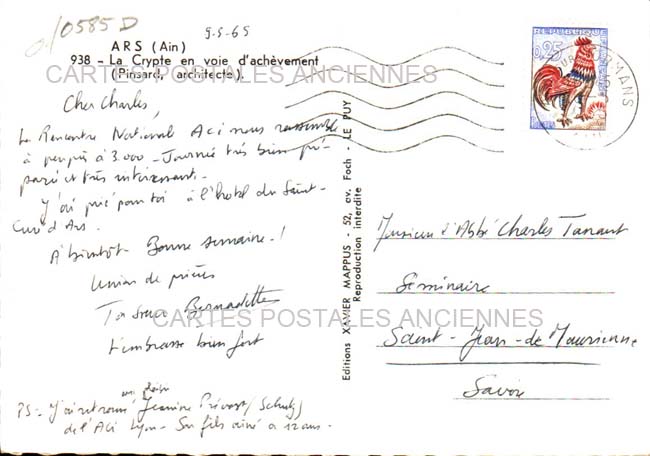 0585 D
9-5-65
ARS (Ain)
938 - La Crypte en voie d'achèvement
(Pinsard, architecte).
CARTES POSTALES ANCIENNES
REPUBLIQUE
0,25
MANS
Cher Charles,
La Rencontre National Aci nous rassemble
à peu près à 3.000 - Journée très bien pré-
parée et très intéressante.
J'ai prié pour toi à l'hotel du Saint-
Curé d'Ars.
A bientôt - Bonne semaine - !
Union de prières
Ta soeur Bernadette
t'embrasse bien fort
PS - J'ai retrouvé Jeanine Prévost
de l'Aci Lyon - Son fils ainé a 12 ans -
Editions XAVIER MAPPUS - 52, av. Foch - LE PUY
Reproduction interdite
Monsieur l'Abbé Charles Tanant
Séminaire
Saint-Jean-de-Maurienne
Savoie
CARTES POSTALES ANCIENNES